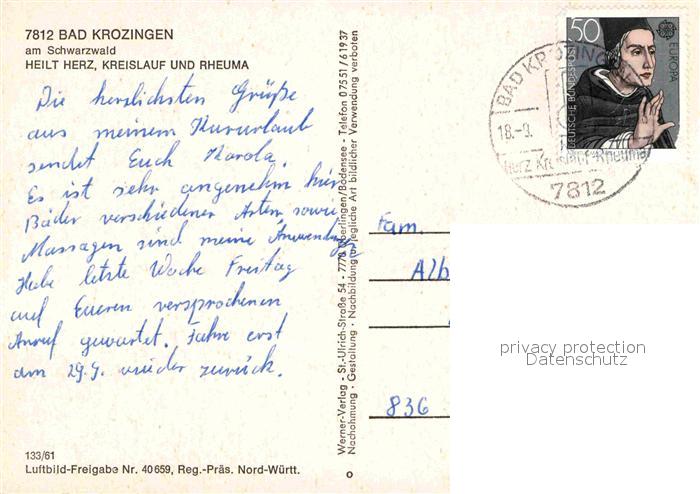 7812 BAD KROZINGEN
am Schwarzwald
HEILT HERZ, KREISLAUF UND RHEUMA
Die herzlichsten Grüße
aus meinem Kururlaub
sendet Euch Karola.
Es ist sehr angenehm hier
Bäder verschiedener Arten, sowie
Massagen sind meine Anwendungen
Habe letzte Woche Freitag
auf Eueren versprochenen
Anruf gewartet. Fahre erst
am 29.9. wieder zurück.
133/61
Luftbild-Freigabe Nr. 40659, Reg.-Präs. Nord-Württ.
Werner-Verlag - St.-Ulrich-Straße 54 - 7770 Überlingen/Bodensee - Telefon 07551/61937
Nachahmung - Gestaltung - Nachbildung in jegliche Art bildlicher Verwendung verboten
50
DEUTSCHE BUNDESPOST
EUROPA
BAD KROZINGEN
18.-9.
Herz Kreislauf Rheuma
7812
Fam.
Alb
836
privacy protection
Datenschutz